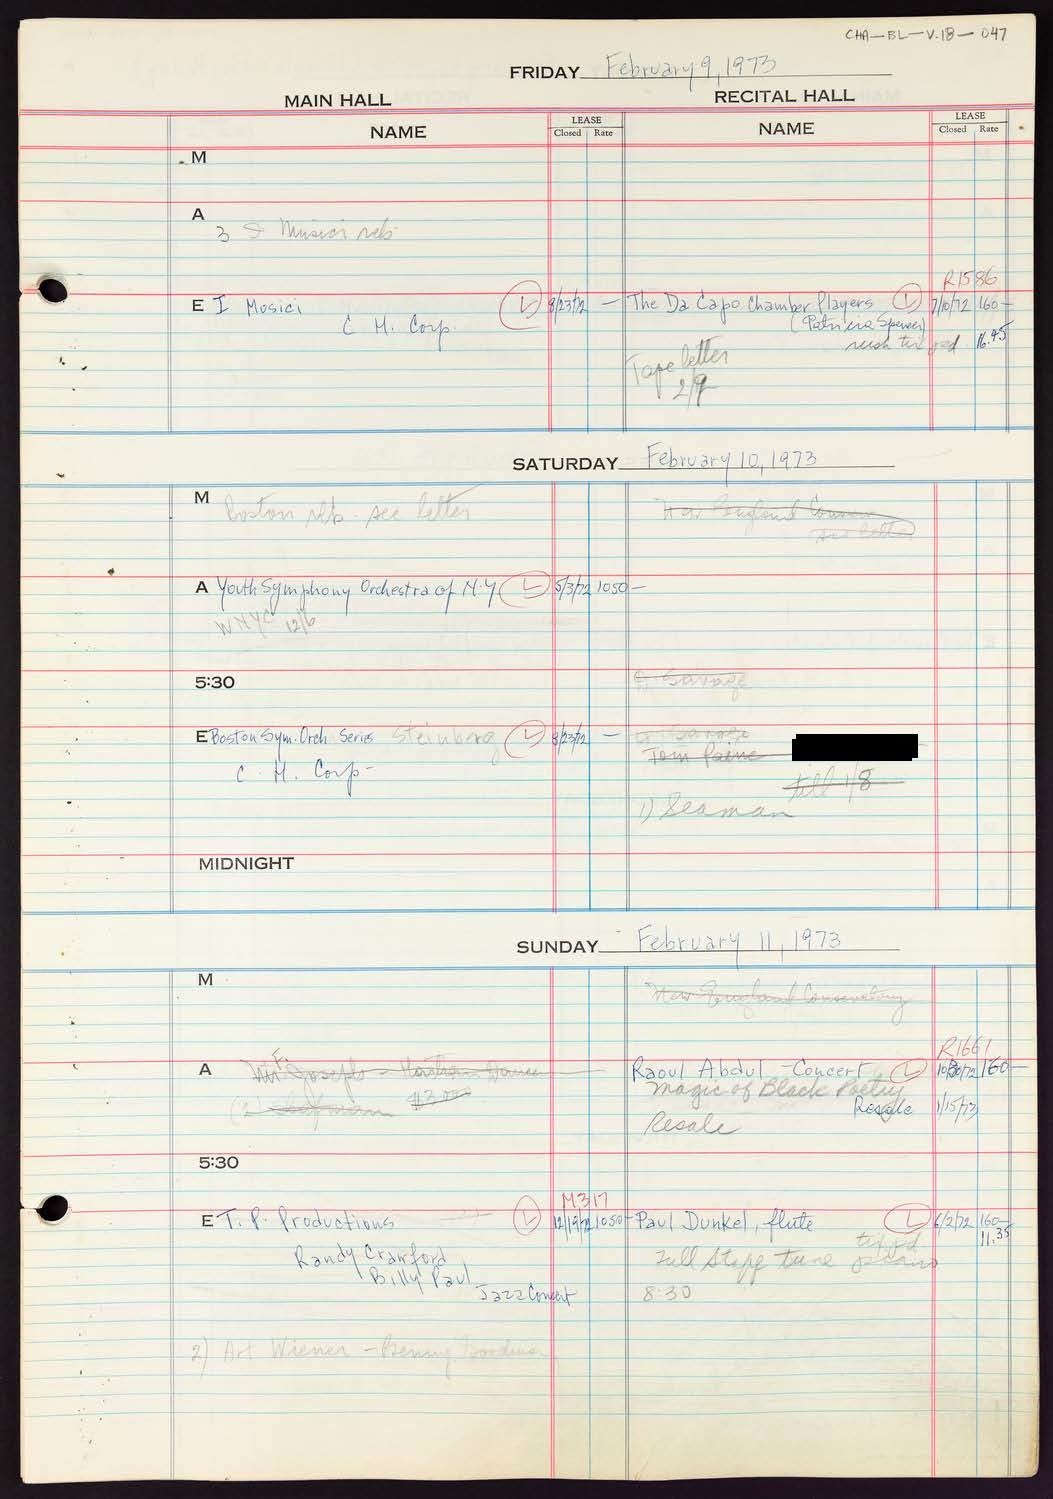 CHA-BL-V.18-047
FRIDAY February 9, 1973
MAIN HALL RECITAL HALL
NAME LEASE Closed Rate NAME LEASE Closed Rate
M
A
3 I Musici reh
R1586
E I Musici L 8/23/72 — The Da Capo Chamber Players L 7/10/72 160—
C H. Corp. (Patricia Spencer)
16.45
Tape letter
2/9
SATURDAY February 10, 1973
M Boston reh - see letter New England Conserv
see letter
A Youth Symphony Orchestra of N.Y L 5/3/72 1050—
WNYC 12/6
5:30 Savage
E Boston Sym. Orch. Series Steinberg L 8/23/72 —
C. H. Corp- Tom Paine
till 1/8
1) Seaman
MIDNIGHT
SUNDAY February 11, 1973
M New England Conservatory
R1661
A Raoul Abdul - Concert L 10/30/72 160—
Magic of Black Poetry
Resale 1/15/73
Resale
5:30
M317
E T. P. Productions L 12/19/72 1050— Paul Dunkel, flute L 6/2/72 160—
11.35
Randy Crawford Full Stage tune piano
Billy Paul
Jazz Concert 8:30
2) Art Wiener - Benny Goodman